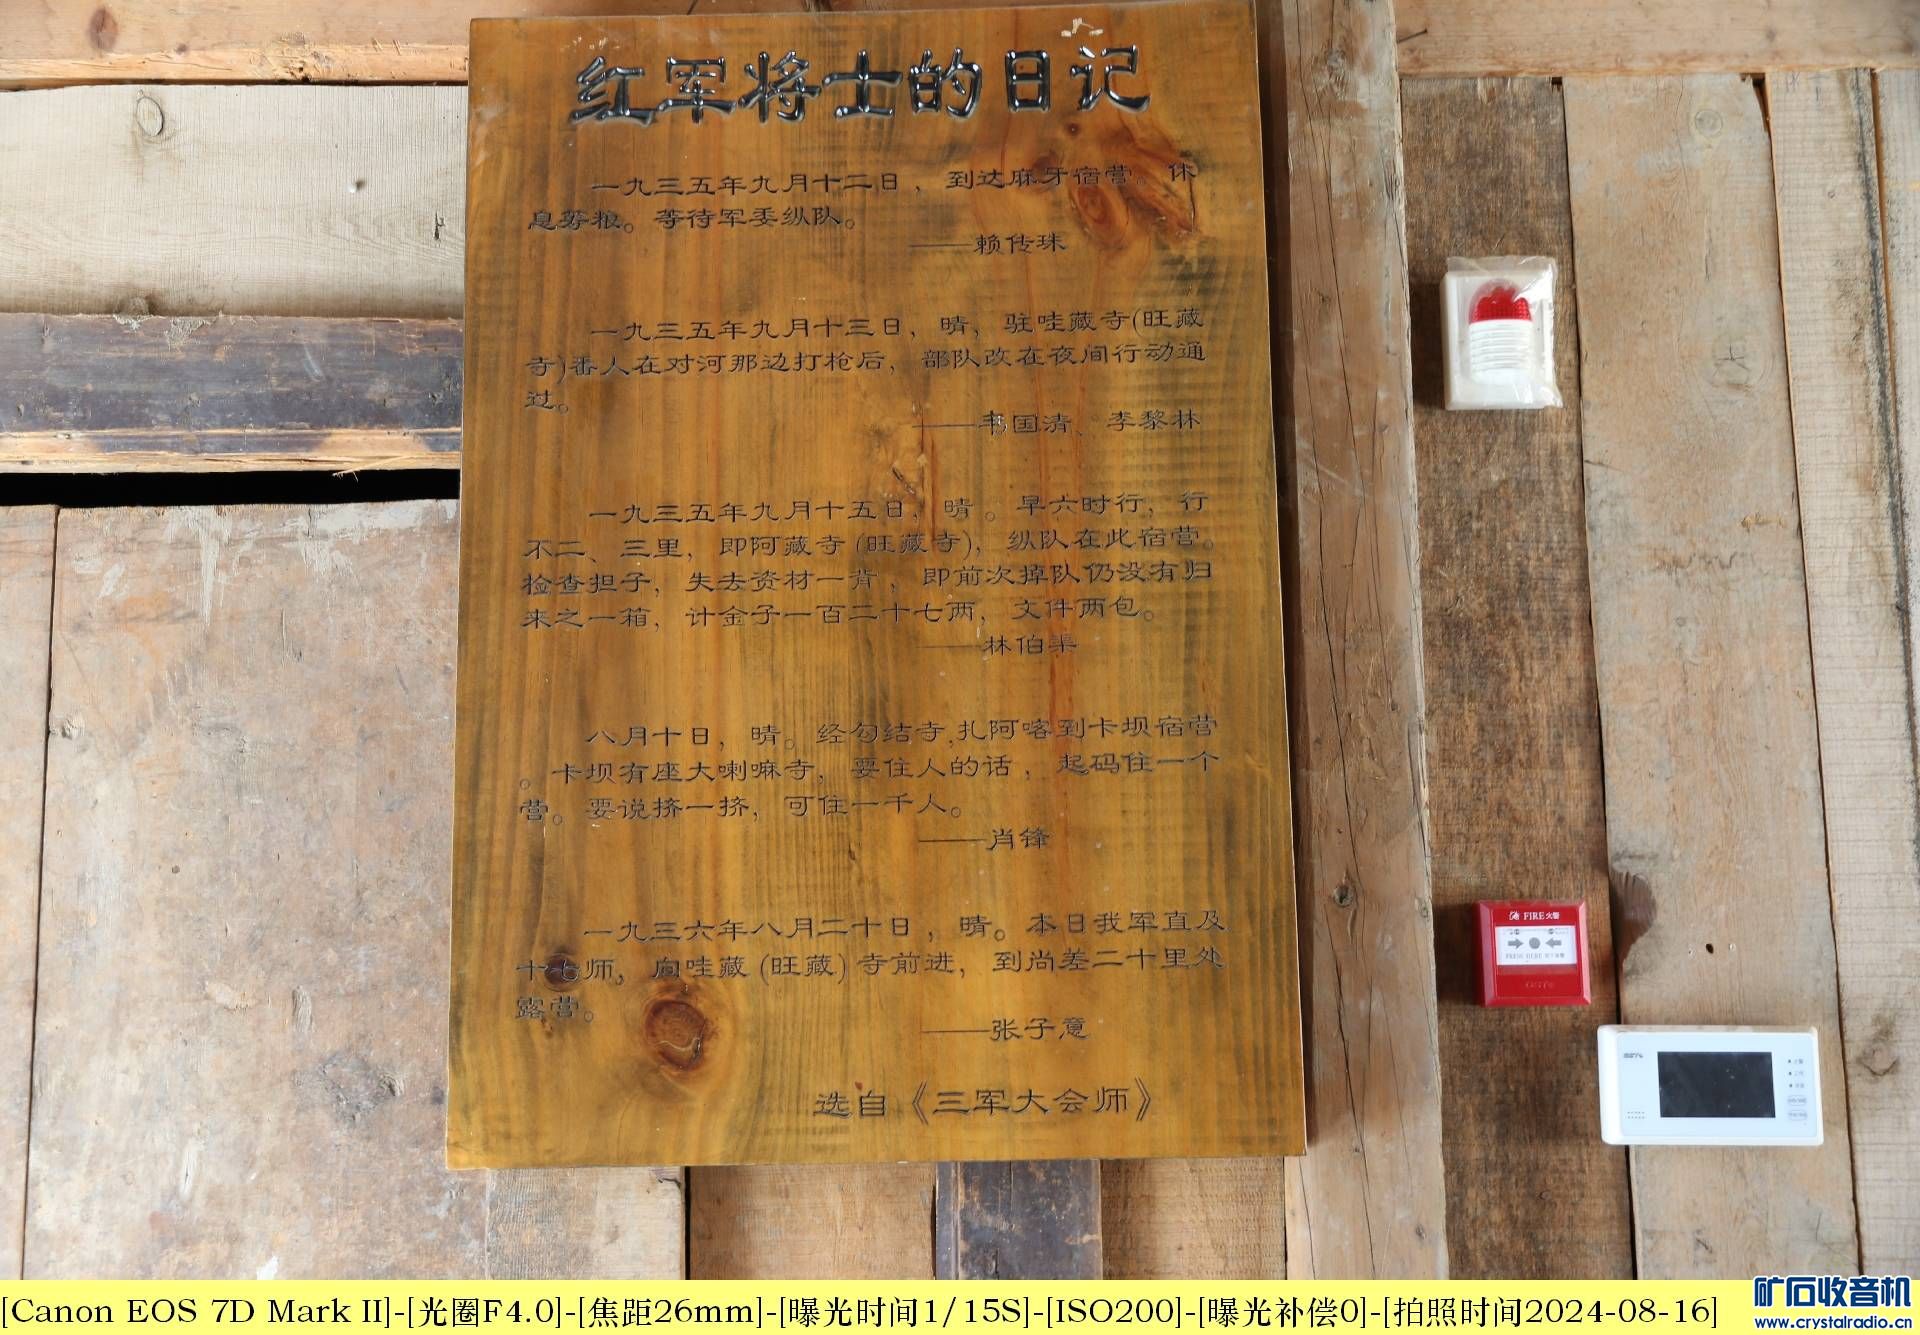 红军将士的日记
一九三五年九月十二日，到达麻牙宿营。休
息筹粮。等待军委纵队。
——赖传珠
一九三五年九月十三日，晴，驻哇藏寺(旺藏
寺)番人在对河那边打枪后，部队改在夜间行动通
过。
——韦国清、李黎林
一九三五年九月十五日，晴。早六时行，行
不二、三里，即阿藏寺(旺藏寺)，纵队在此宿营。
检查担子，失去资材一背，即前次掉队仍没有归
来之一箱，计金子一百二十七两，文件两包。
——林伯渠
八月十日，晴。经勾结寺,扎阿喀到卡坝宿营
。卡坝有座大喇嘛寺，要住人的话，起码住一个
营。要说挤一挤，可住一千人。
——肖锋
一九三六年八月二十日，晴。本日我军直及
十七师，向哇藏(旺藏)寺前进，到尚差二十里处
露营。
——张子意
选自《三军大会师》
FIRE 火警
PRESS HERE
[Canon EOS 7D Mark II]-[光圈F4.0]-[焦距26mm]-[曝光时间1/15S]-[ISO200]-[曝光补偿0]-[拍照时间2024-08-16]
矿石收音机
www.crystalradio.cn